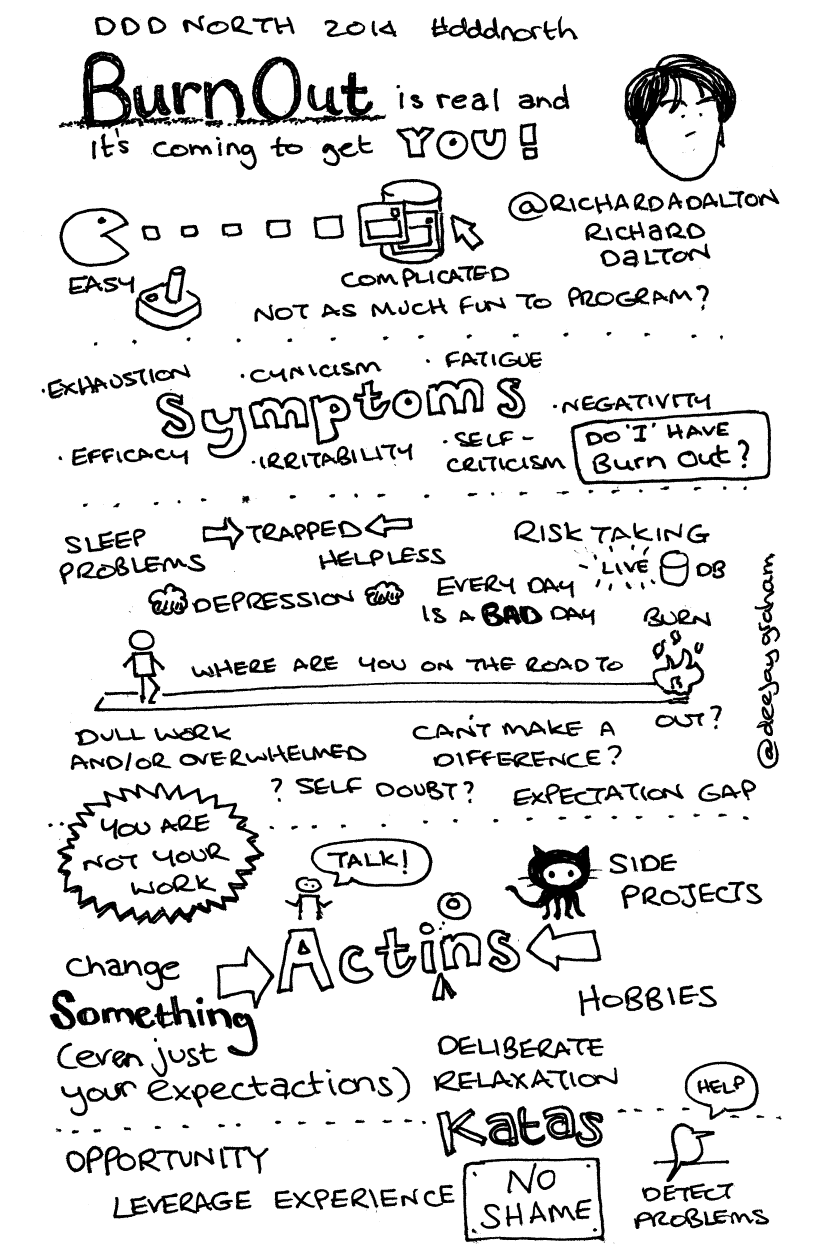 DDD NORTH 2014 #dddnorth
BurnOut is real and
it's coming to get YOU!
@RICHARDADALTON
RICHARD
DALTON
EASY
COMPLICATED
NOT AS MUCH FUN TO PROGRAM?
·EXHAUSTION ·CYNICISM ·FATIGUE
Symptoms
·NEGATIVITY
·EFFICACY ·IRRITABILITY ·SELF-
CRITICISM
DO 'I' HAVE
Burn Out?
SLEEP
PROBLEMS
TRAPPED
HELPLESS
RISK TAKING
LIVE DB
DEPRESSION
EVERY DAY
IS A BAD DAY
WHERE ARE YOU ON THE ROAD TO
BURN
OUT?
@deejaygraham
DULL WORK
AND/OR OVERWHELMED
CAN'T MAKE A
DIFFERENCE?
? SELF DOUBT?
EXPECTATION GAP
YOU ARE
NOT YOUR
WORK
TALK!
SIDE
PROJECTS
Actions
Change
Something
(even just
your expectactions)
HOBBIES
DELIBERATE
RELAXATION
Katas
HELP
OPPORTUNITY
LEVERAGE EXPERIENCE
NO
SHAME
DETECT
PROBLEMS